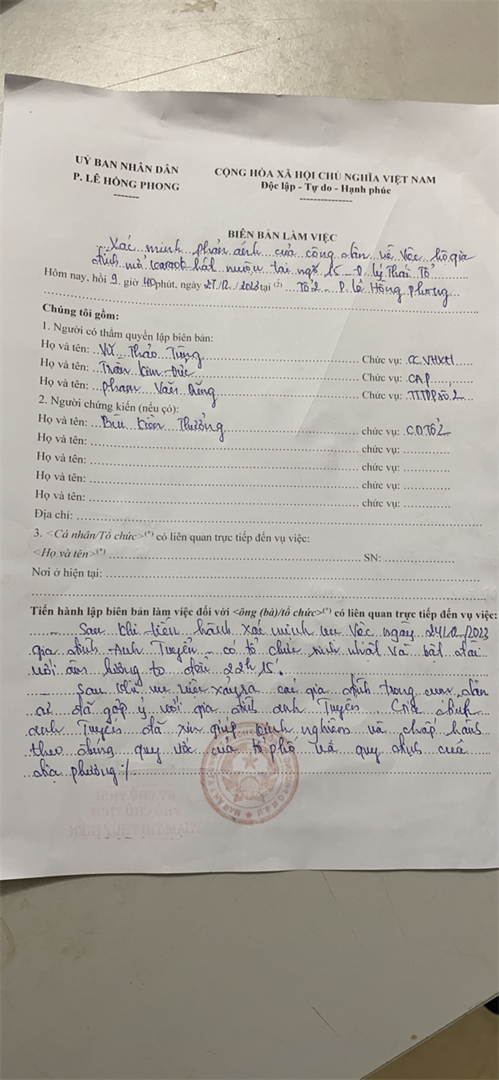 UỶ BAN NHÂN DÂN
P. LÊ HỒNG PHONG
CỘNG HÒA XÃ HỘI CHỦ NGHĨA VIỆT NAM
Độc lập - Tự do - Hạnh phúc
BIÊN BẢN LÀM VIỆC
Xác minh phản ánh của công dân về việc hộ gia
đình mở karaoke hát tại ngõ 15 - P. Lý Thái Tổ
Hôm nay, hồi 9 giờ 40 phút, ngày 27/12/2023 tại (2) Tổ 2 P. Lê Hồng Phong
Chúng tôi gồm:
1. Người có thẩm quyền lập biên bản:
Họ và tên: Vũ Thảo Tùng Chức vụ: CC VHXH
Họ và tên: Trần Kim Đức Chức vụ: CAP
Họ và tên: Phạm Văn Dũng Chức vụ: TTTDP số 2
2. Người chứng kiến (nếu có):
Họ và tên: Bùi Kiên Thưởng chức vụ: CD Tổ 2
Họ và tên: chức vụ:
Họ và tên: chức vụ:
Họ và tên: chức vụ:
Họ và tên: chức vụ:
Địa chỉ:
3. <Cá nhân/Tổ chức>(*) có liên quan trực tiếp đến vụ việc:
<Họ và tên>(*) SN:
Nơi ở hiện tại:
Tiến hành lập biên bản làm việc đối với <ông (bà)/tổ chức>(*) có liên quan trực tiếp đến vụ việc:
Sau khi tiến hành xác minh vụ việc ngày 24/12/2023
gia đình Anh Tuyển có tổ chức sinh nhật và bật đài
với âm lượng to đến 22h15'.
Sau khi vụ việc xảy ra các gia đình trong cụm dân
cư đã góp ý với gia đình anh Tuyển. Gia đình
anh Tuyển đã xin rút kinh nghiệm và chấp hành
theo đúng quy ước của tổ phố và quy định của
địa phương ./.